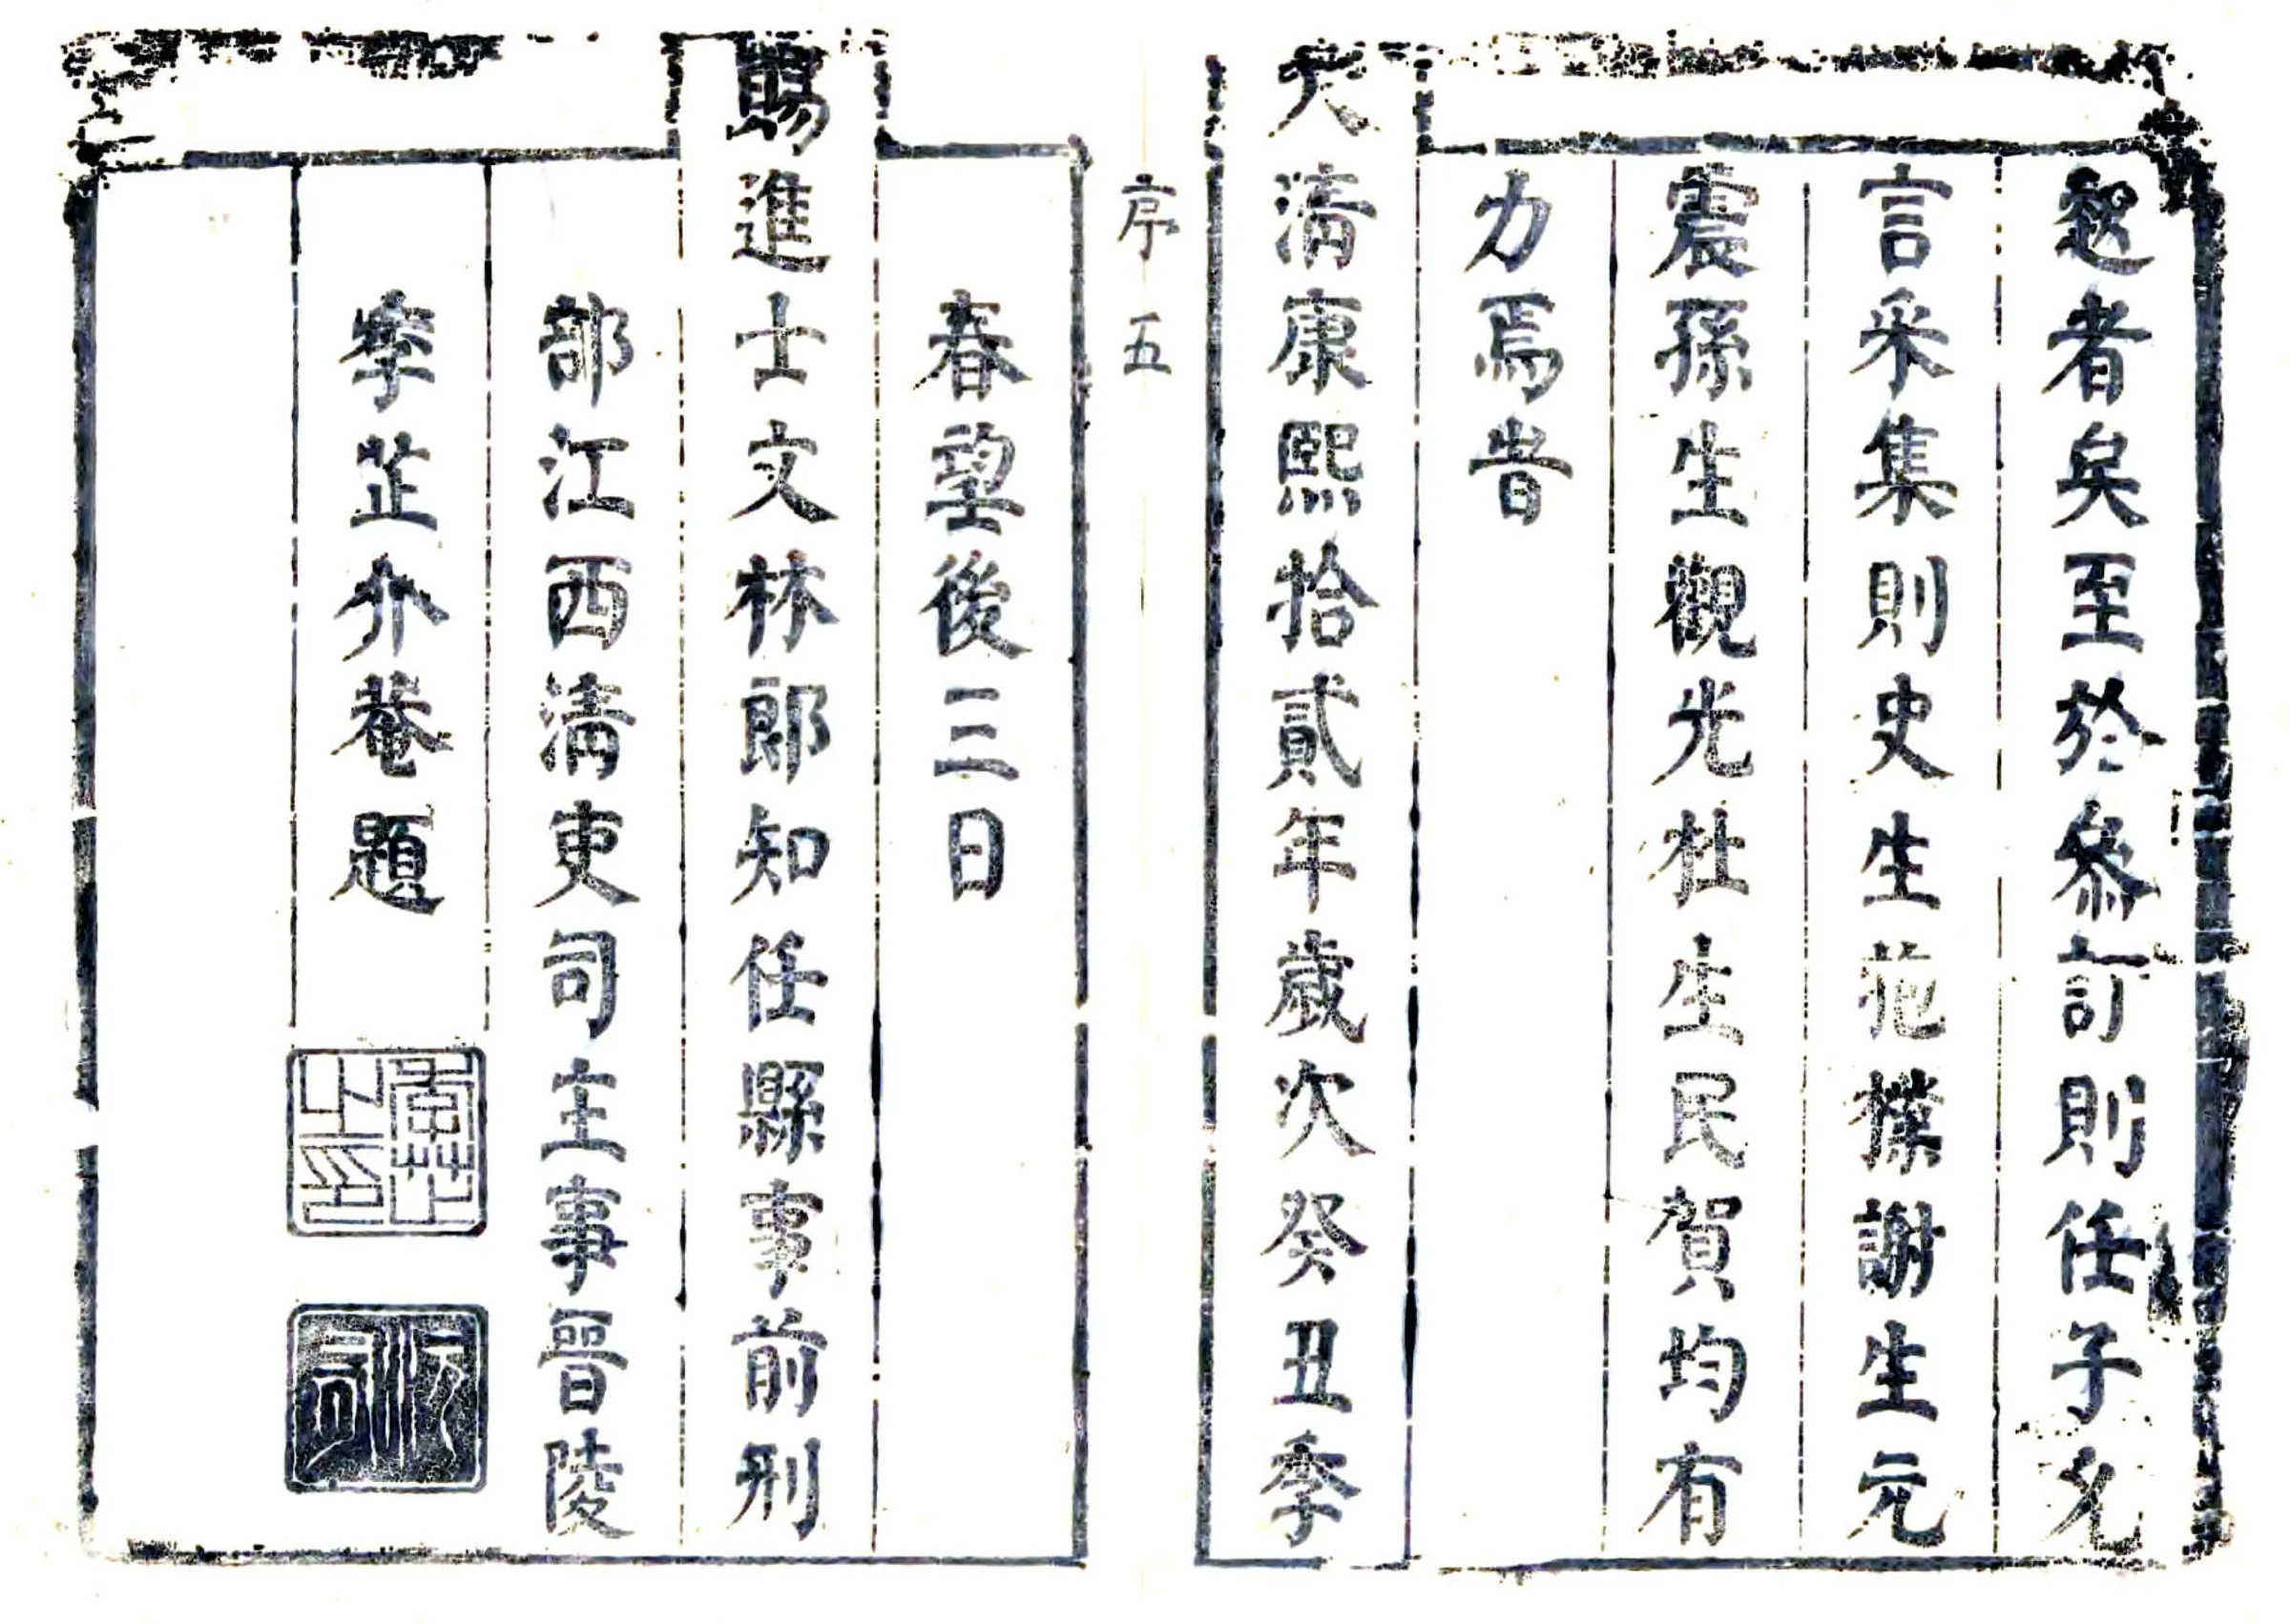 起者矣至於叅訂則任子允
言采集則史生樸謝生元
震孫生觀光杜生民賀均有
力焉旹
大清康熙拾貳年歲次癸丑季
序五
春望後三日
賜進士文林郎知任縣事前刑
部江西清吏司主事晉陵
季芷介菴題
季芷之印